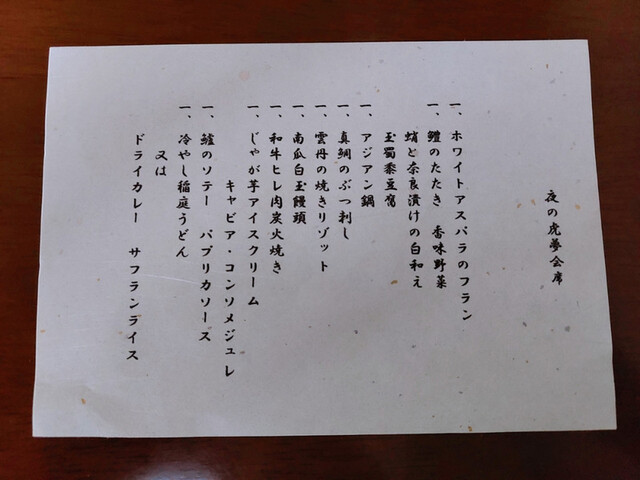 夜の虎夢会席
一、ホワイトアスパラのフラン
一、鱧のたたき 香味野菜
蛸と奈良漬けの白和え
玉蜀黍豆腐
一、アジアン鍋
一、真鯛のぶつ刺し
一、雲丹の焼きリゾット
一、南瓜白玉饅頭
一、和牛ヒレ肉炭火焼き
一、じゃが芋アイスクリーム
キャビア・コンソメジュレ
一、鱸のソテー パプリカソース
一、冷やし稲庭うどん
又は
ドライカレー サフランライス